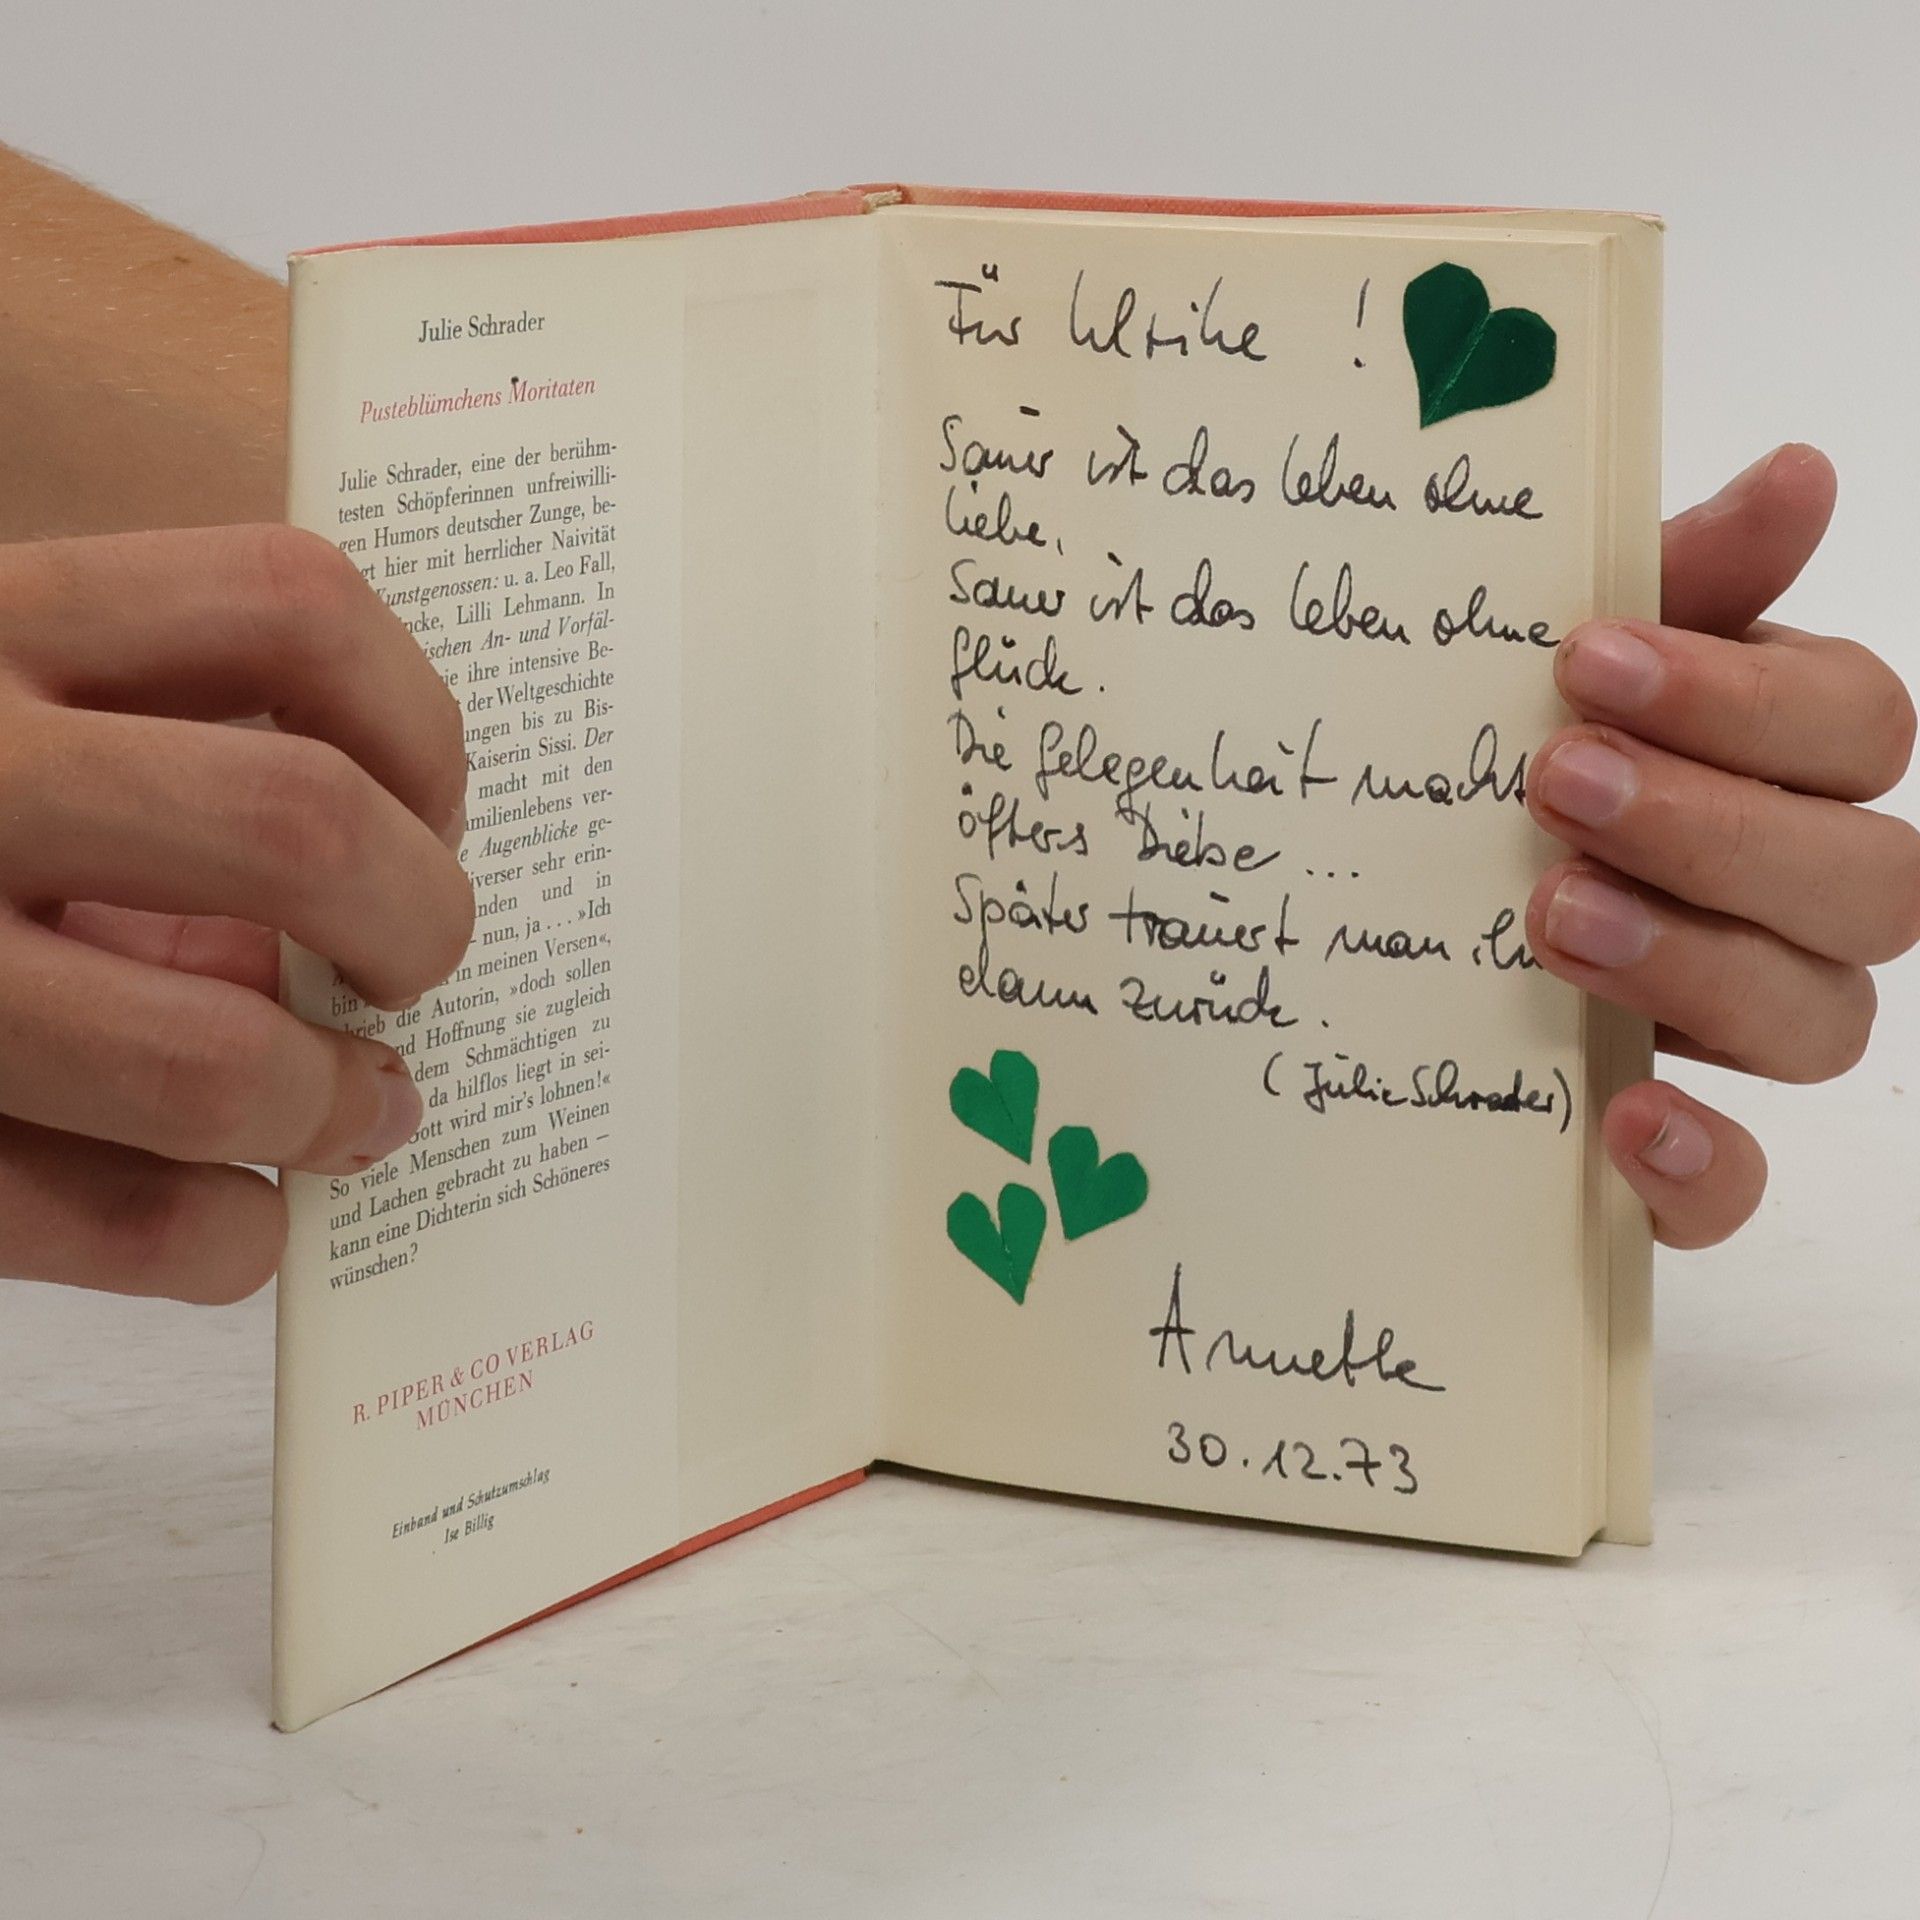 Julie Schrader
Pusteblümchens Moritaten
Julie Schrader, eine der berühm-
testen Schöpferinnen unfreiwilli-
gen Humors deutscher Zunge, be-
hier mit herrlicher Naivität
Kunstgenossen: u. a. Leo Fall,
Lilli Lehmann. In
An- und Vorfäl-
ihre intensive Be-
der Weltgeschichte
bis zu Bis-
Kaiserin Sissi. Der
macht mit den
ver-
Augenblicke ge-
sehr erin-
und in
– nun, ja . . . »Ich
bin in meinen Versen«,
die Autorin, »doch sollen
und Hoffnung sie zugleich
dem Schmächtigen zu
da hilflos liegt in sei-
Gott wird mir's lohnen!«
So viele Menschen zum Weinen
und Lachen gebracht zu haben –
kann eine Dichterin sich Schöneres
wünschen?
R. PIPER & CO VERLAG
MÜNCHEN
Einband und Schutzumschlag
Ise Billig
Für Ulrike !
Sauer ist das Leben ohne
Liebe,
Sauer ist das Leben ohne
Glück.
Die Gelegenheit macht
öfters Diebe ...
Später trauert man ihr
dann zurück.
(Julie Schrader)
Annette
30.12.73